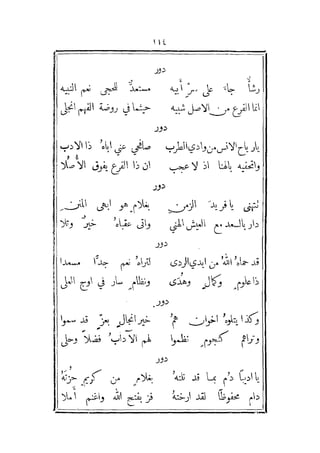 ١١٤
دور
رشأٌ جاءَ على سرِّ أَبيه مستعدٌّ للحجى نعم النبيه
انما الفرع من الاصل شبيه حيثما في روضة الفهم انجلى
دور
يارياح الانس من وادي الطرب صافحي عني اباهُ ذا الادب
واتحفيه بالهنا اذ لا عجب ان ذا الفرع يفوق الأُصلا
دور
تتهنى يا فريد الزمن بغلامٍ هو ابهى المنن
دار بالسعد مع العيش الهني واتى عقباهُ خيرٌ وتلا
دور
قد حماهُ اللهُ من ايدي الردى لتراهُ نعم جدًّا مسعدا
ذا علومٍ وكمالٍ وهُدًى ونظامٍ سار في اوج العلى
دور
وكذا يتلوهُ اخوان همُ خير انجالٍ بعزٍّ قد سموا
وتراهم كنجومٍ نظموا لهم الآدابُ فضلًا وحلى
دور
يا اديبًا دُم بما قد نلتهُ بغلامٍ من كريمٍ حزتهُ
دام محفوظًا لقد ارختهُ فز بفتح الله واغنم أملا